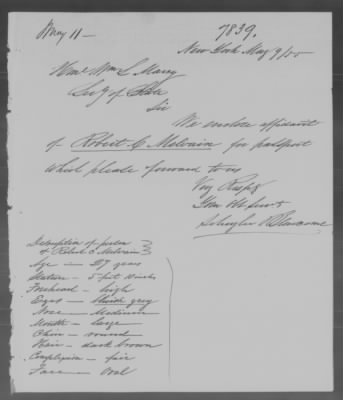 May 11 —
7839.
New York May 9/55
Honl Wm L Marcy
Secy of State
Sir
We enclose affidavit
of Robert C Melvain for passport
which please forward to us
Very Respy
Your Ob Servts
Schuyler
Description of person
of Robert C Melvain
Age — 27 years
Stature — 5 feet inches
Forehead — high
Eyes — bluish grey
Nose — Medium
Mouth — large
Chin — round
Hair — dark brown
Complexion — fair
Face — Oval